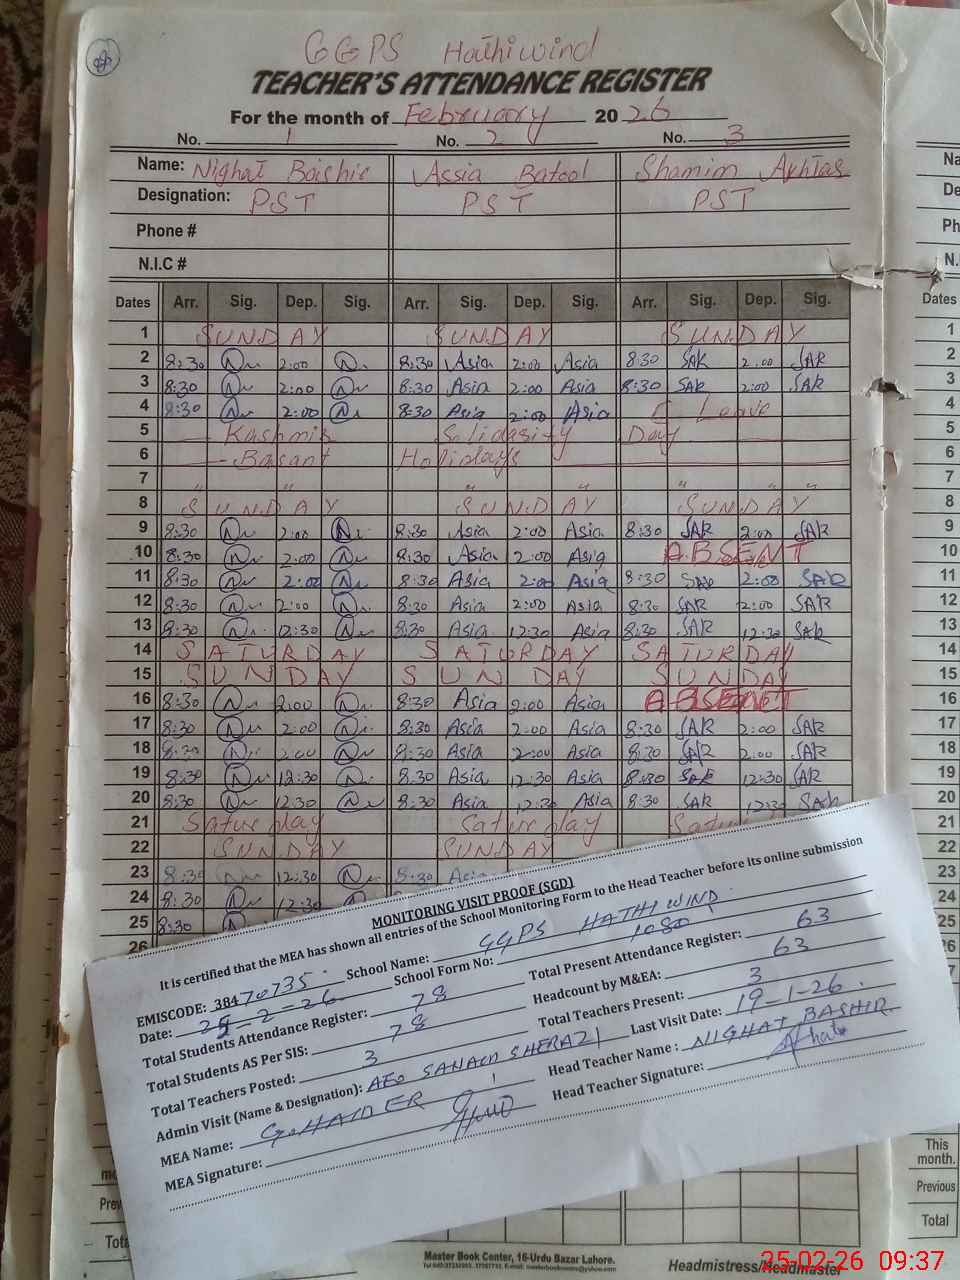 GGPS Hathiwind
TEACHER'S ATTENDANCE REGISTER
For the month of February 2026
No. 1 No. 2 No. 3
Name: Nighat Bashir Assia Batool Shamim Akhtar
Designation: PST PST PST
Phone #
N.I.C #
Dates Arr. Sig. Dep. Sig. Arr. Sig. Dep. Sig. Arr. Sig. Dep. Sig.
1 SUNDAY SUNDAY SUNDAY
2 8:30 2:00 8:30 Asia 2:00 Asia 8:30 SAK 2:00 SAK
3 8:30 2:00 8:30 Asia 2:00 Asia 8:30 SAK 2:00 SAK
4 8:30 2:00 8:30 Asia 2:00 Asia Leave
5 Kashmir Solidarity Day
6 Basant Holidays
7 " " " " " "
8 SUNDAY SUNDAY SUNDAY
9 8:30 2:00 8:30 Asia 2:00 Asia 8:30 SAK 2:00 SAK
10 8:30 2:00 8:30 Asia 2:00 Asia ABSENT
11 8:30 2:00 8:30 Asia 2:00 Asia 8:30 SAK 2:00 SAK
12 8:30 2:00 8:30 Asia 2:00 Asia 8:30 SAK 2:00 SAK
13 8:30 12:30 8:30 Asia 12:30 Asia 8:30 SAK 12:30 SAK
14 SATURDAY SATURDAY SATURDAY
15 SUNDAY SUNDAY SUNDAY
16 8:30 2:00 8:30 Asia 2:00 Asia ABSENT
17 8:30 2:00 8:30 Asia 2:00 Asia 8:30 SAK 2:00 SAK
18 8:30 2:00 8:30 Asia 2:00 Asia 8:30 SAK 2:00 SAK
19 8:30 12:30 8:30 Asia 12:30 Asia 8:30 SAK 12:30 SAK
20 8:30 12:30 8:30 Asia 12:30 Asia 8:30 SAK 12:30 SAK
21 Saturday Saturday
22 SUNDAY SUNDAY
23 8:30 12:30 8:30
24 8:30 12:30
25 8:30
26
MONITORING VISIT PROOF (SGD)
It is certified that the MEA has shown all entries of the School Monitoring Form to the Head Teacher before its online submission
EMISCODE: 38470735 School Name: GGPS HATHIWIND
Date: 25-2-26 School Form No: 1080
Total Students Attendance Register: 78 Total Present Attendance Register: 63
Total Students AS Per SIS: 78 Headcount by M&EA: 63
Total Teachers Posted: 3 Total Teachers Present: 3
Admin Visit (Name & Designation): AEO SHERAZI Last Visit Date: 19-1-26
MEA Name: G.HAIDER Head Teacher Name: NIGHAT BASHIR
MEA Signature: Head Teacher Signature:
This month.
Previous
Total
Master Book Center, 16-Urdu Bazar Lahore.
Headmistress/Headmaster
25-02-26 09:37